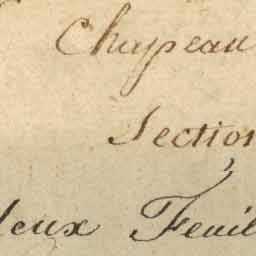 Chapeau
Section
deux Feuil